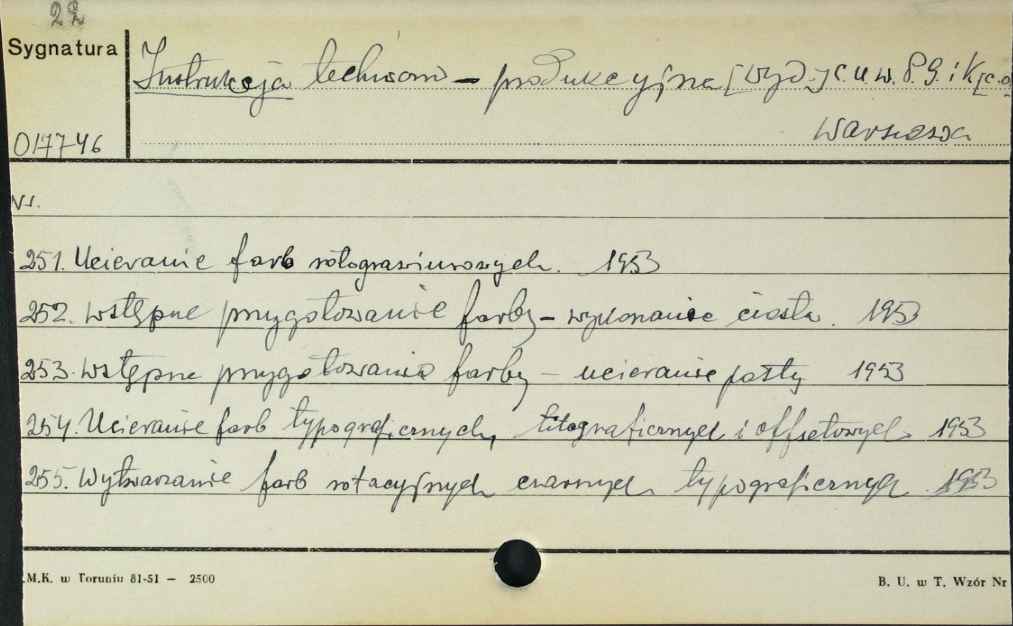 22
Sygnatura
Instrukcja techniczno - produkcyjna [wyd.] C.U.W. P.G. i K[c.o
017746
Warszawa
Nr.
251. Ucieranie farb rotograwiurowych. 1953
252. Wstępne przygotowanie farby - wykonanie ciasta. 1953
253. Wstępne przygotowanie farby - ucieranie pasty 1953
254. Ucieranie farb typograficznych, litograficznych i offsetowych 1953
255. Wytwarzanie farb rotacyjnych czarnych typograficznych 1953
.M.K. w Toruniu 81-51 — 2500
B. U. w T. Wzór Nr